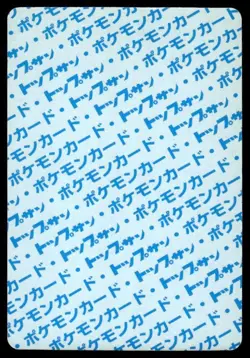 ポケモンカード・
トップサン・ポケモンカード
ポケモンカード・トップサン・
トップサン・ポケモンカード・
ポケモンカード・トップサン・
・トップサン・ポケモンカード
ポケモンカード・トップサン・
・トップサン・ポケモンカード
ポケモンカード・トップサン・
・トップサン・ポケモンカード
ポケモンカード・トップサン・
トップサン・ポケモンカード
ポケモンカード・トップサン
・ポケモンカード